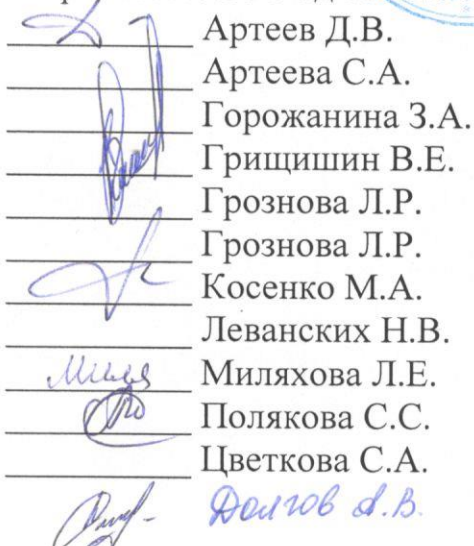 Артеев Д.В.
Артеева С.А.
Горожанина З.А.
Грищишин В.Е.
Грознова Л.Р.
Грознова Л.Р.
Косенко М.А.
Леванских Н.В.
Миляхова Л.Е.
Полякова С.С.
Цветкова С.А.
Долгов А.В.